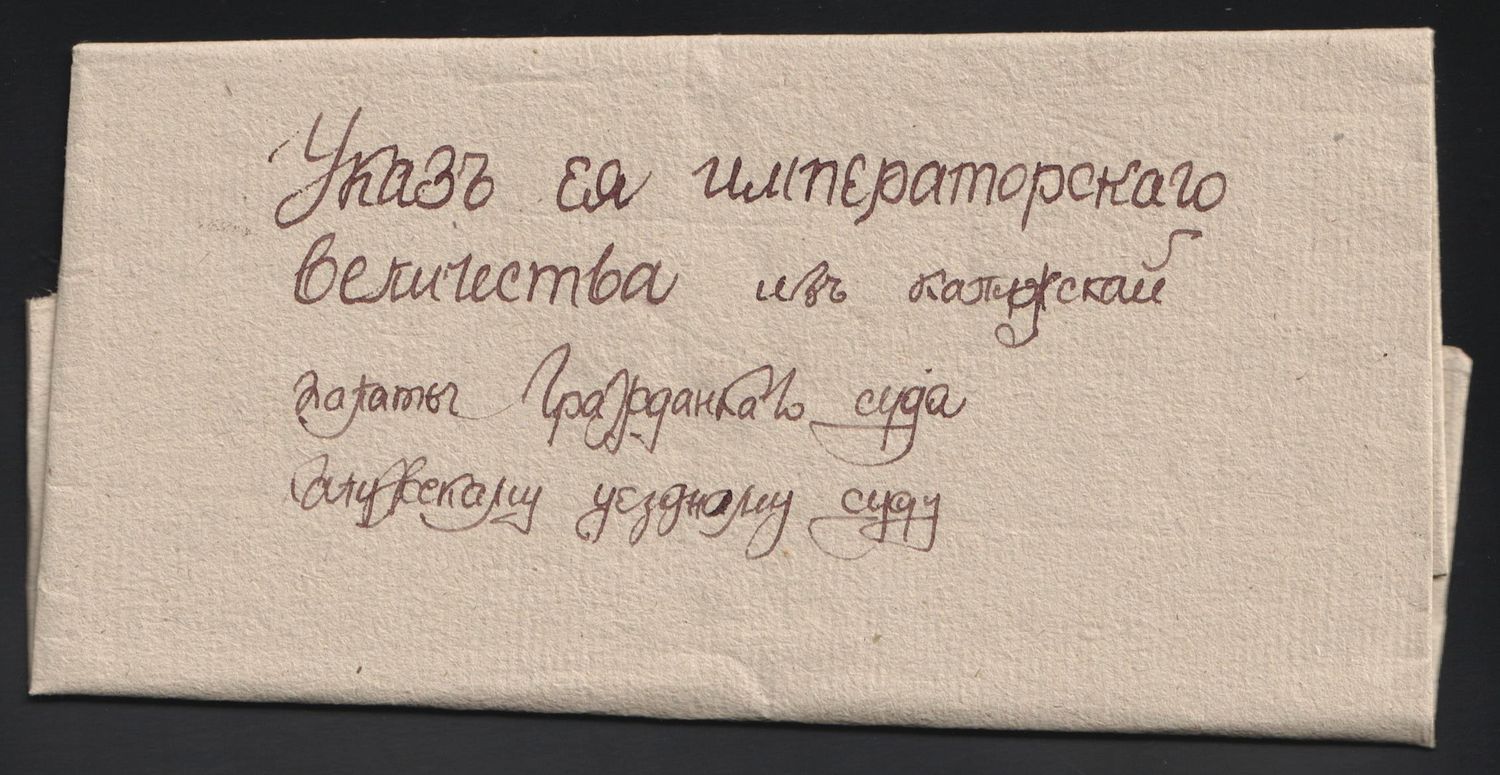 Указъ ея императорскаго
величества изъ калужской
палаты гражданскаго суда
калужскому уездному суду